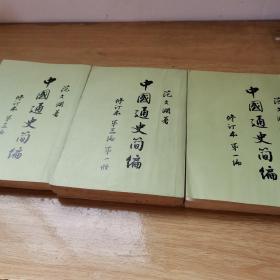 范文澜著
中國通史简编
修订本 第二编
范文澜著
中國通史简编
修订本 第三编 第一册
范文澜著
中國通史简编
修订本 第一编